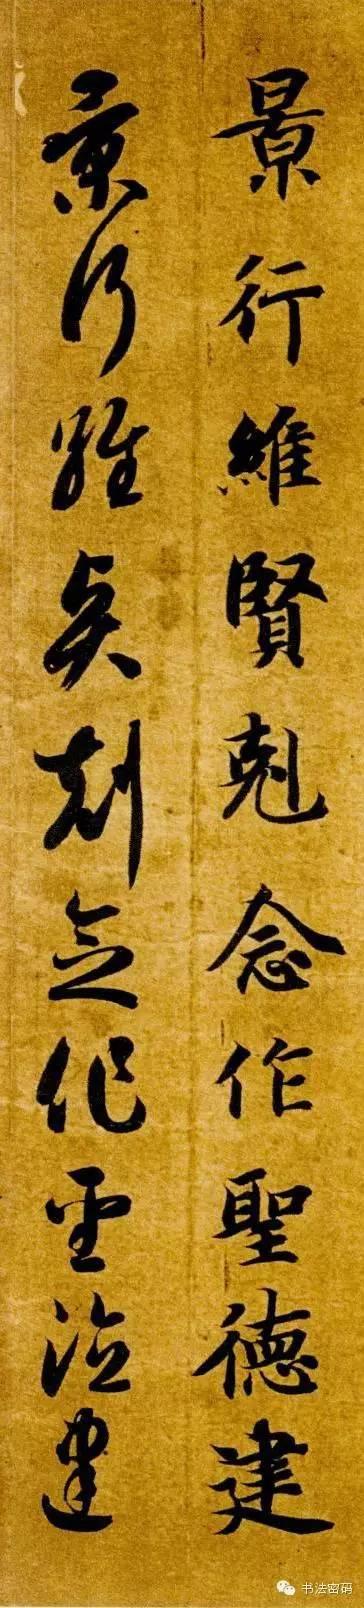 景行維賢剋念作聖德建
景行維賢剋念作聖德建
书法密码